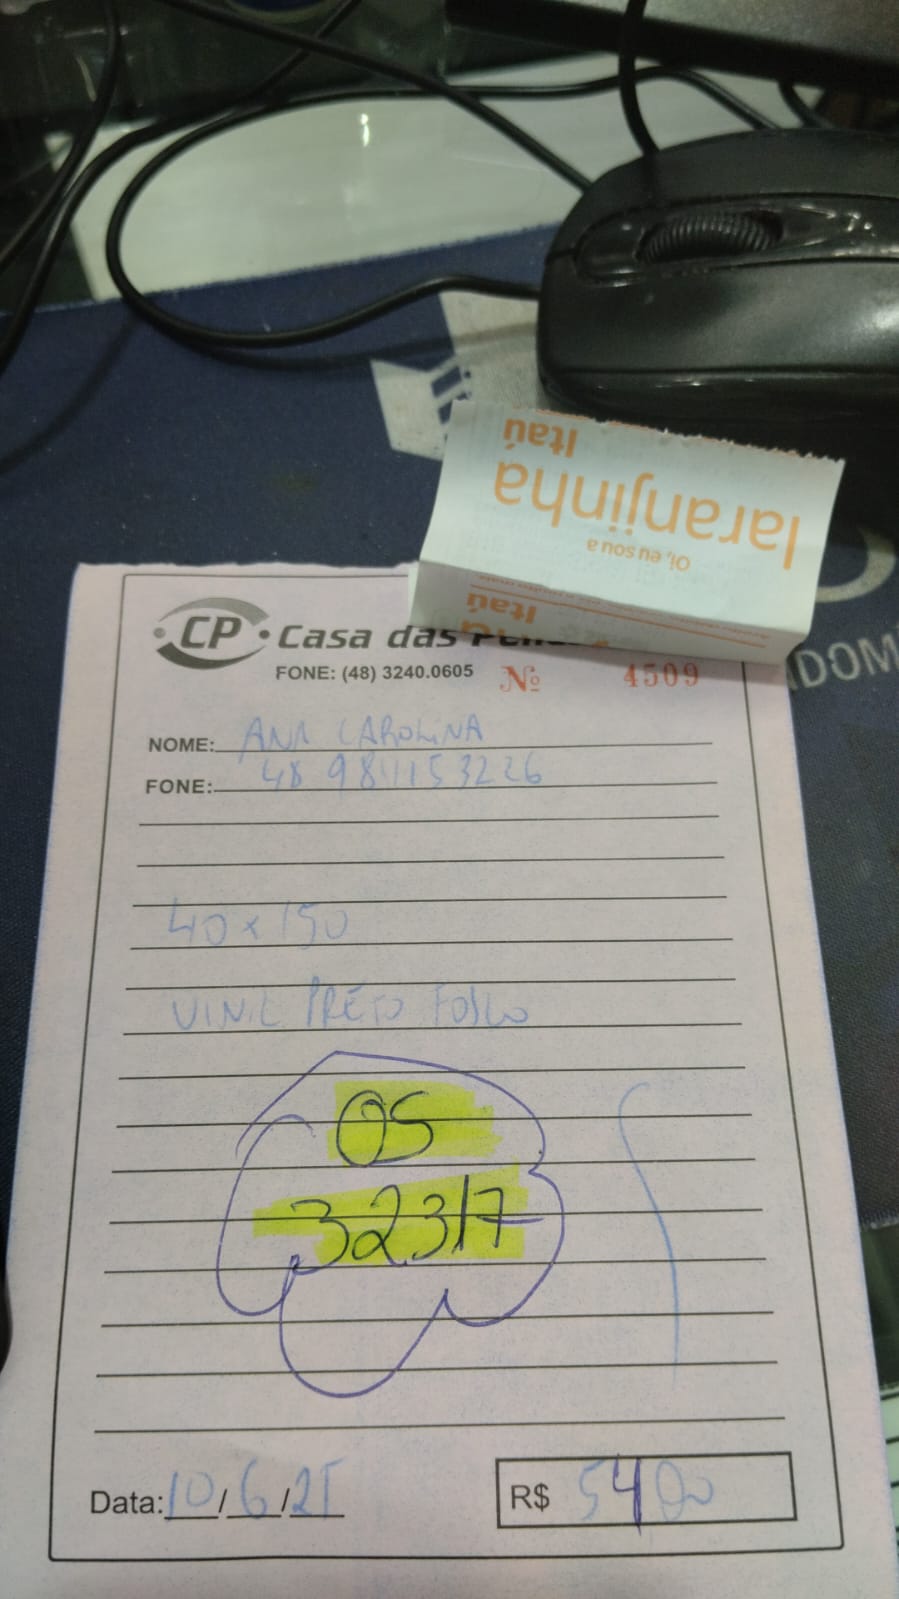 Itaú
laranjinha
Oi, eu sou a
Itaú
CP Casa das
FONE: (48) 3240.0605 Nº 4509
NOME: ANA CAROLINA
FONE: 48 981153226
40 x 150
VINIL PRETO FOSCO
OS
32317
Data: 10/6/25 R$ 5400
DOM